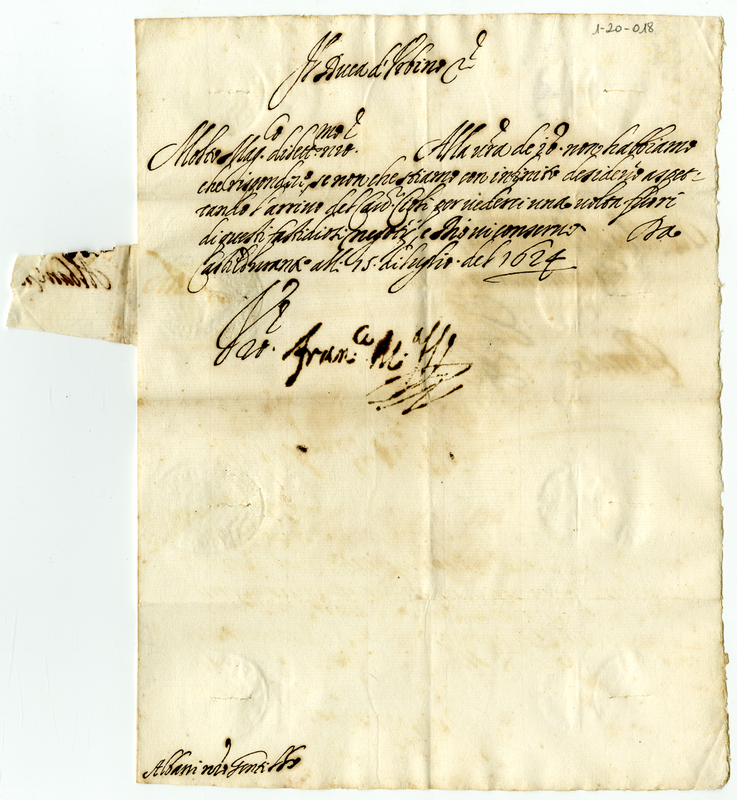 1-20-018
Il Duca d'Urbino &c.
Molto Mag.co dilett.mo nro. Alla vra de 10. non habbiamo
che rispondere, se non che stiamo con infinito desiderio aspet-
tando l'arrivo del Cav.r per vederci una volta fuori
di questi fastidiosi negotij, e Dio vi conservi. Da
Castel Durante alli 15. di luglio. del 1624
Vro. Fran.co M.a
Albani nro Gentilho